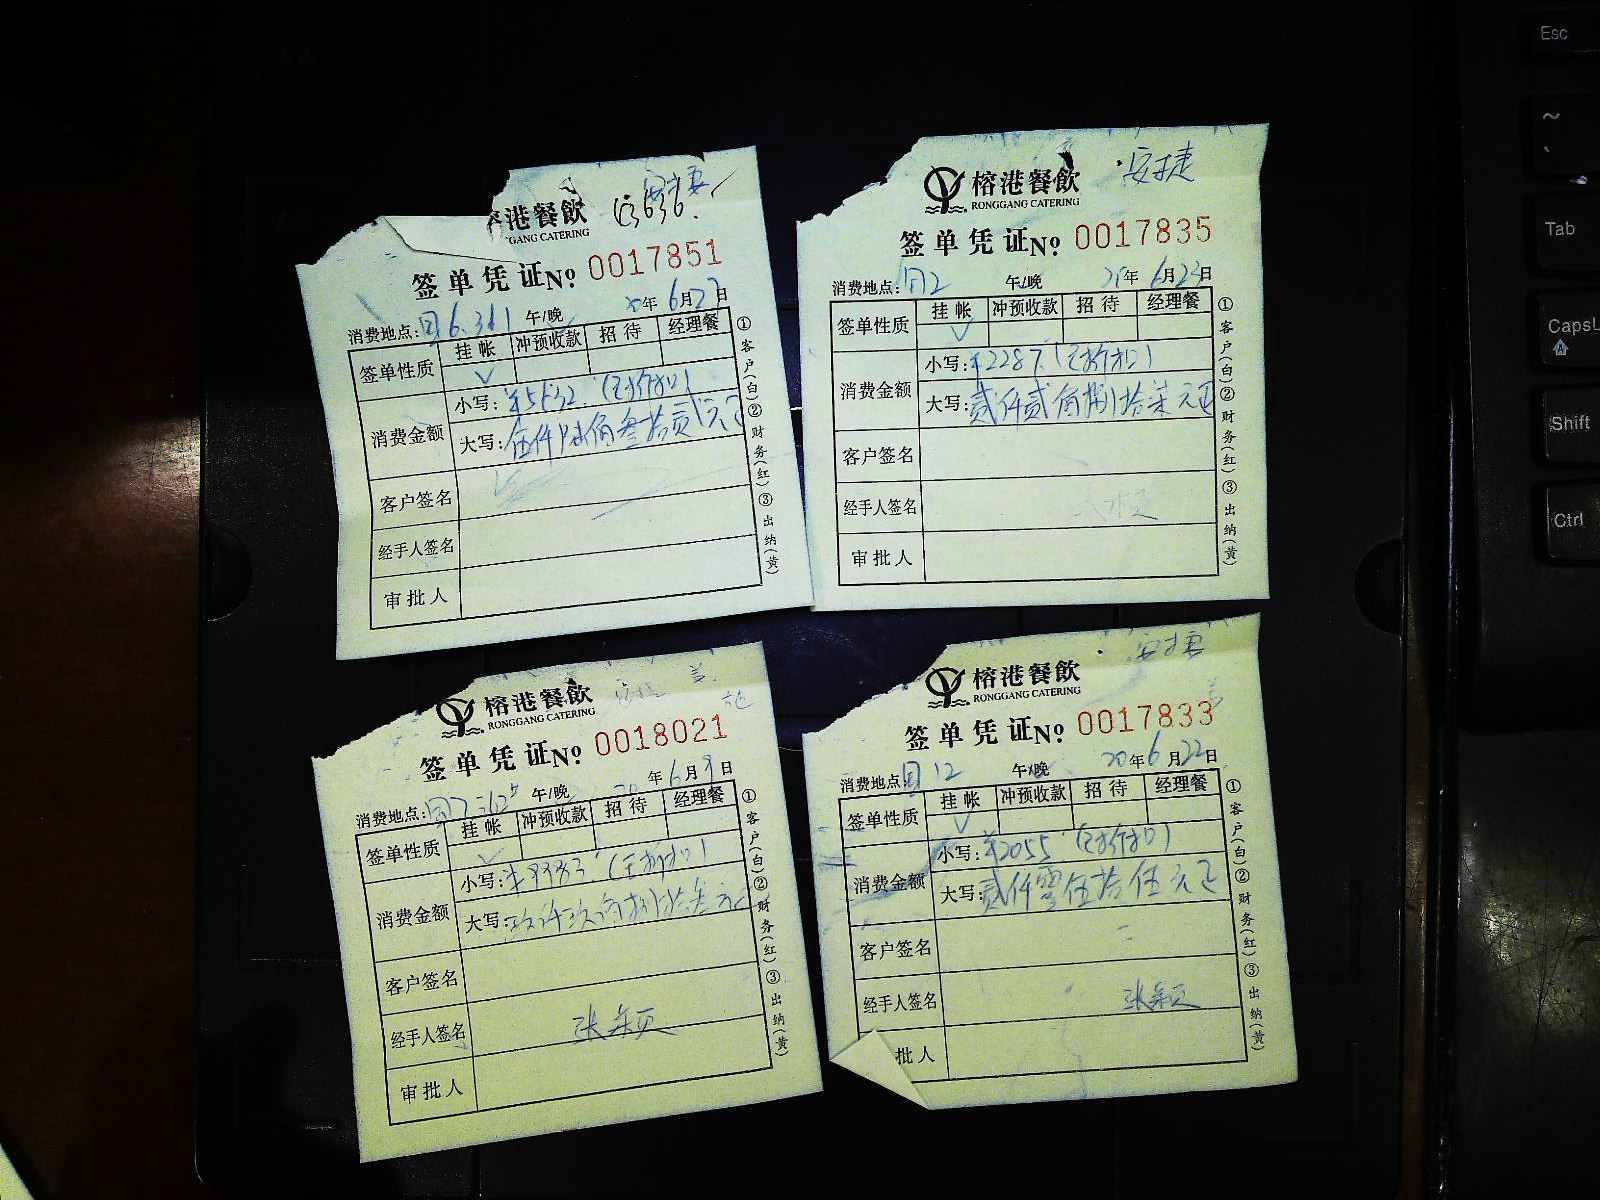 港餐飲
GANG CATERING
签单凭证№ 0017851
消费地点: 午/晚 年6月27日
签单性质 挂帐 冲预收款 招待 经理餐
消费金额 小写:¥5632.(已折扣)
大写:伍仟陆佰叁拾贰元正
客户签名
经手人签名
审批人
①客户(白)②财务(红)③出纳(黄)
安捷
榕港餐飲
RONGGANG CATERING
签单凭证№ 0017835
消费地点: 午/晚 年6月23日
签单性质 挂帐 冲预收款 招待 经理餐
消费金额 小写:¥2287.(已折扣)
大写:贰仟贰佰捌拾柒元正
客户签名
经手人签名
审批人
①客户(白)②财务(红)③出纳(黄)
榕港餐飲
RONGGANG CATERING
签单凭证№ 0018021
消费地点: 午/晚 年6月 日
签单性质 挂帐 冲预收款 招待 经理餐
消费金额 小写:¥9983(已折扣)
大写:玖仟玖佰捌拾叁元正
客户签名
经手人签名
审批人
①客户(白)②财务(红)③出纳(黄)
安捷
榕港餐飲
RONGGANG CATERING
签单凭证№ 0017833
消费地点: 12 午/晚 20年6月22日
签单性质 挂帐 冲预收款 招待 经理餐
消费金额 小写:¥2055(已折扣)
大写:贰仟零伍拾伍元正
客户签名
经手人签名
批人
①客户(白)②财务(红)③出纳(黄)
Esc
~
Tab
CapsL
Shift
Ctrl